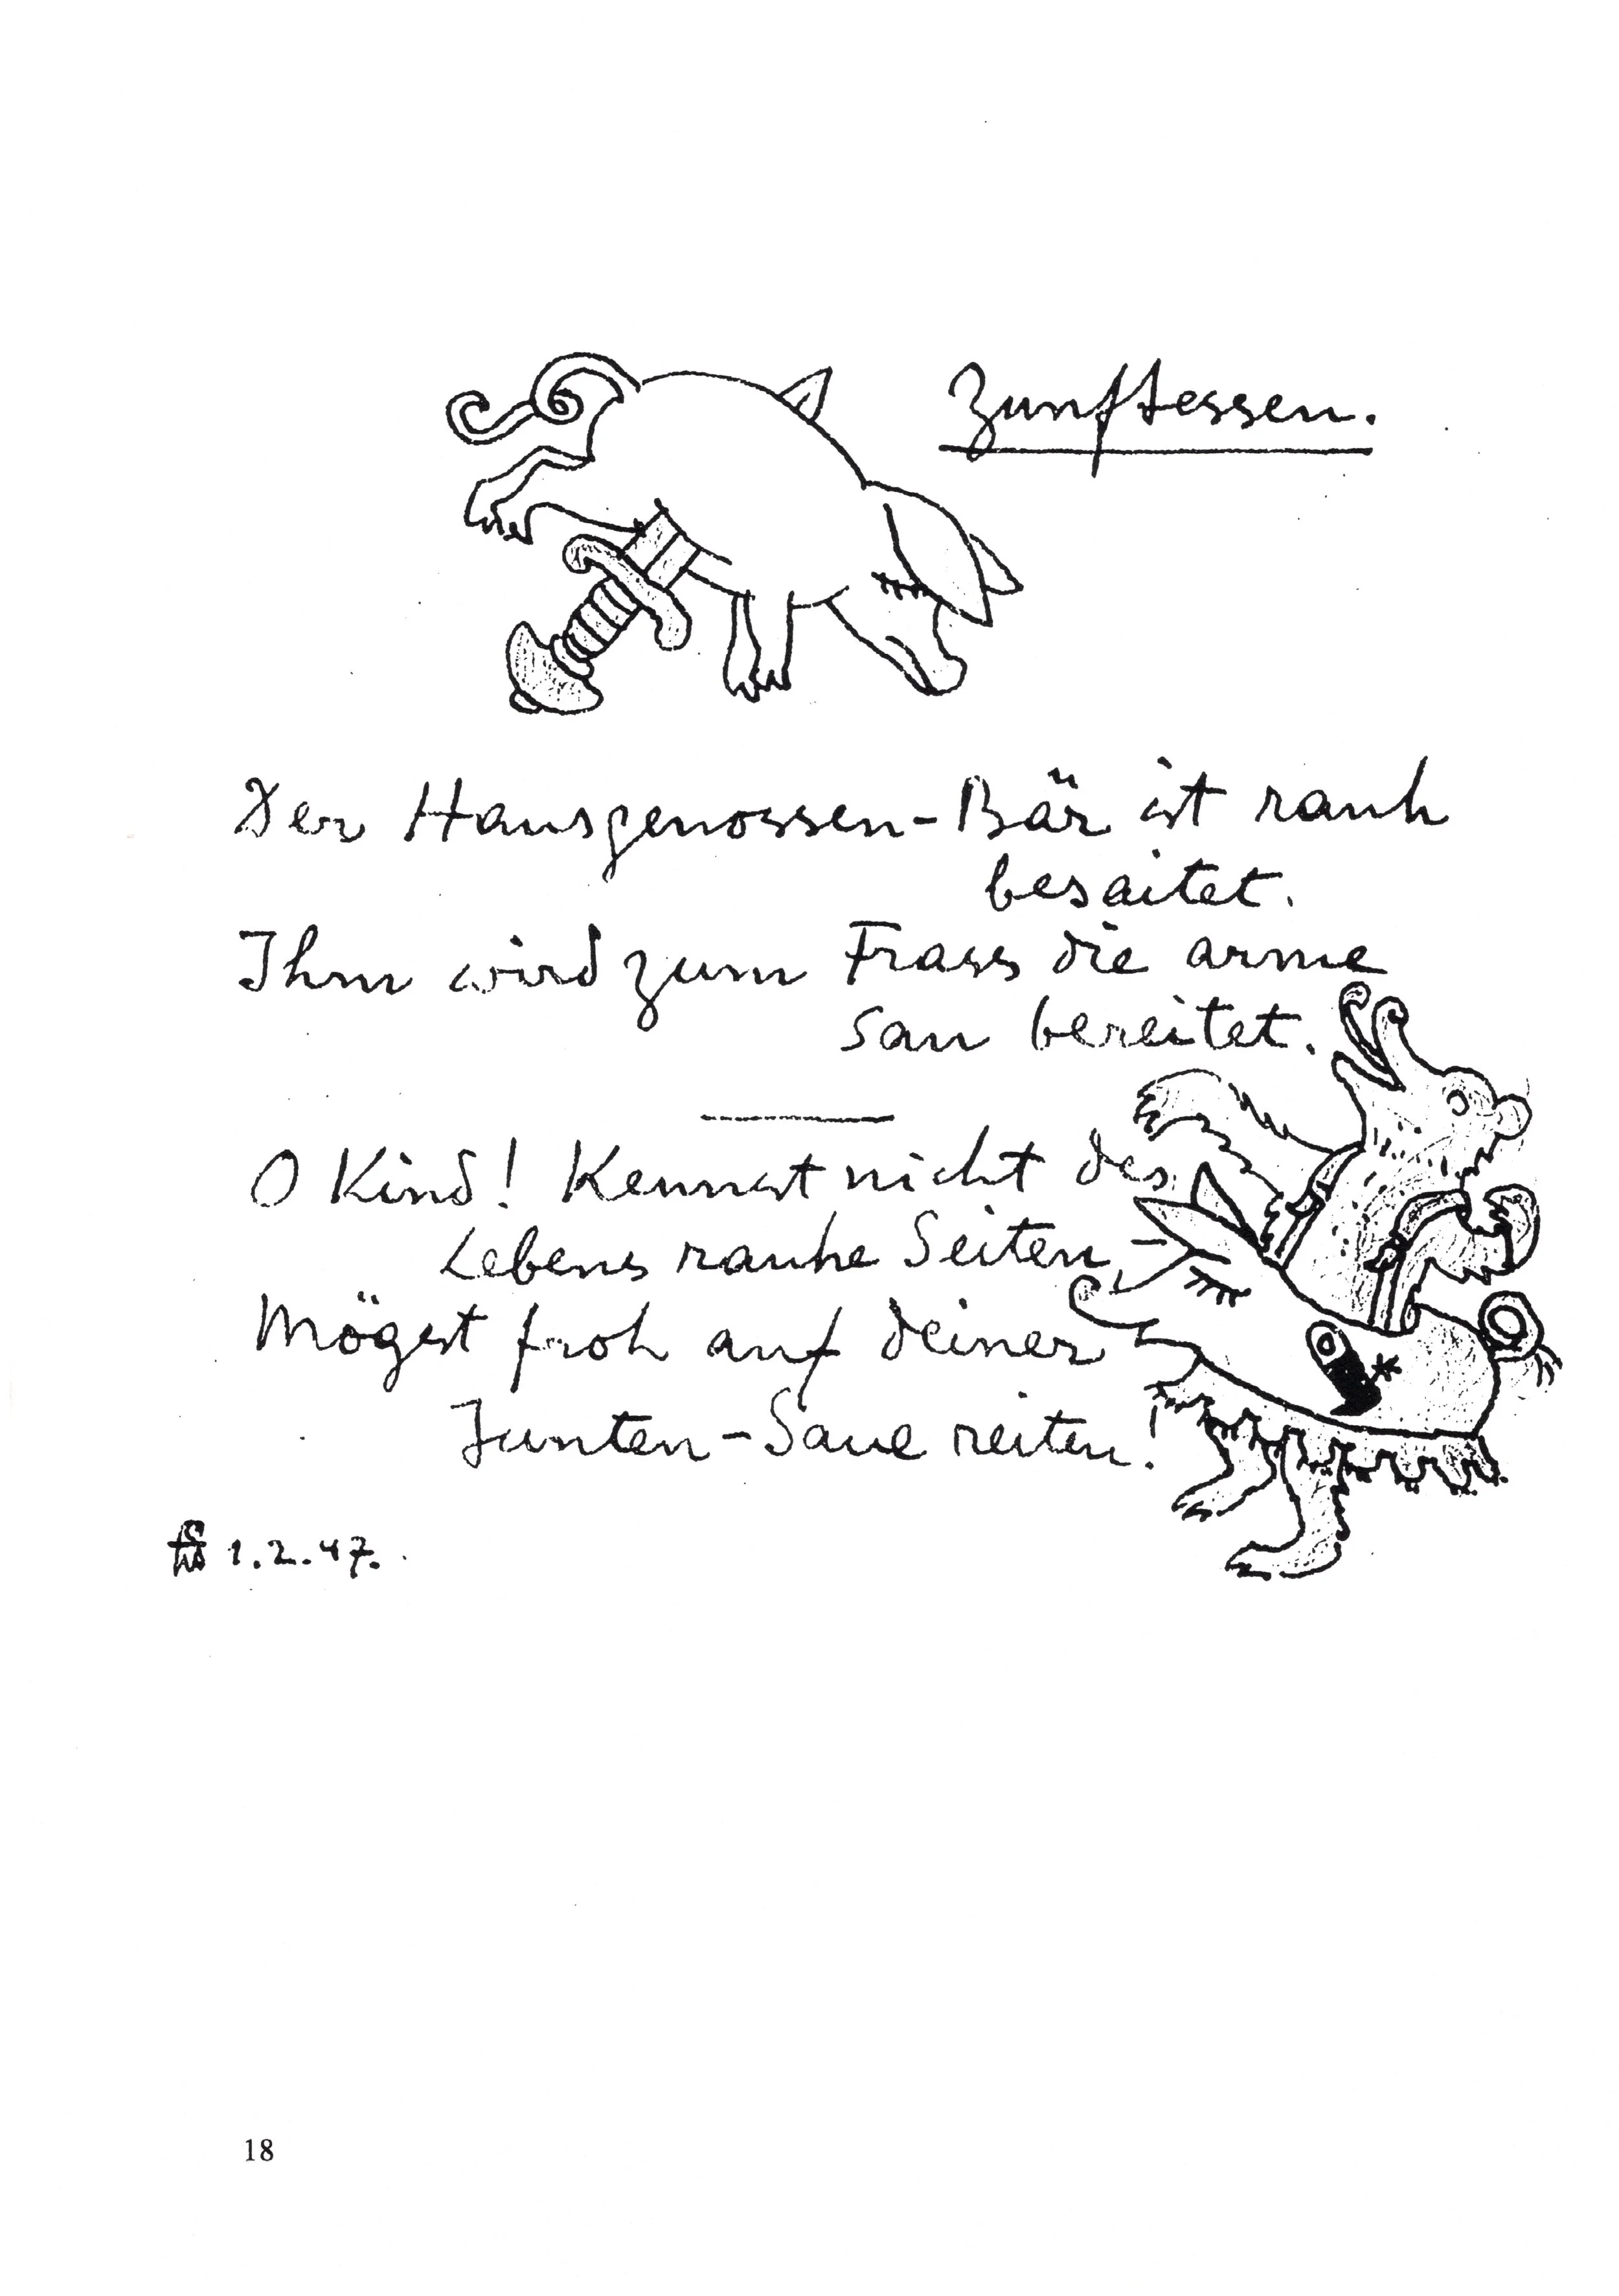 Zunftessen.
Der Hausgenossen-Bär ist rauh
besaitet.
Ihm wird zum Frass die arme
Sau bereitet.
O Kind! Kennst nicht des
Lebens rauhe Seiten
Mögst froh auf deiner
Junten-Saue reiten!
1.2.47.
18